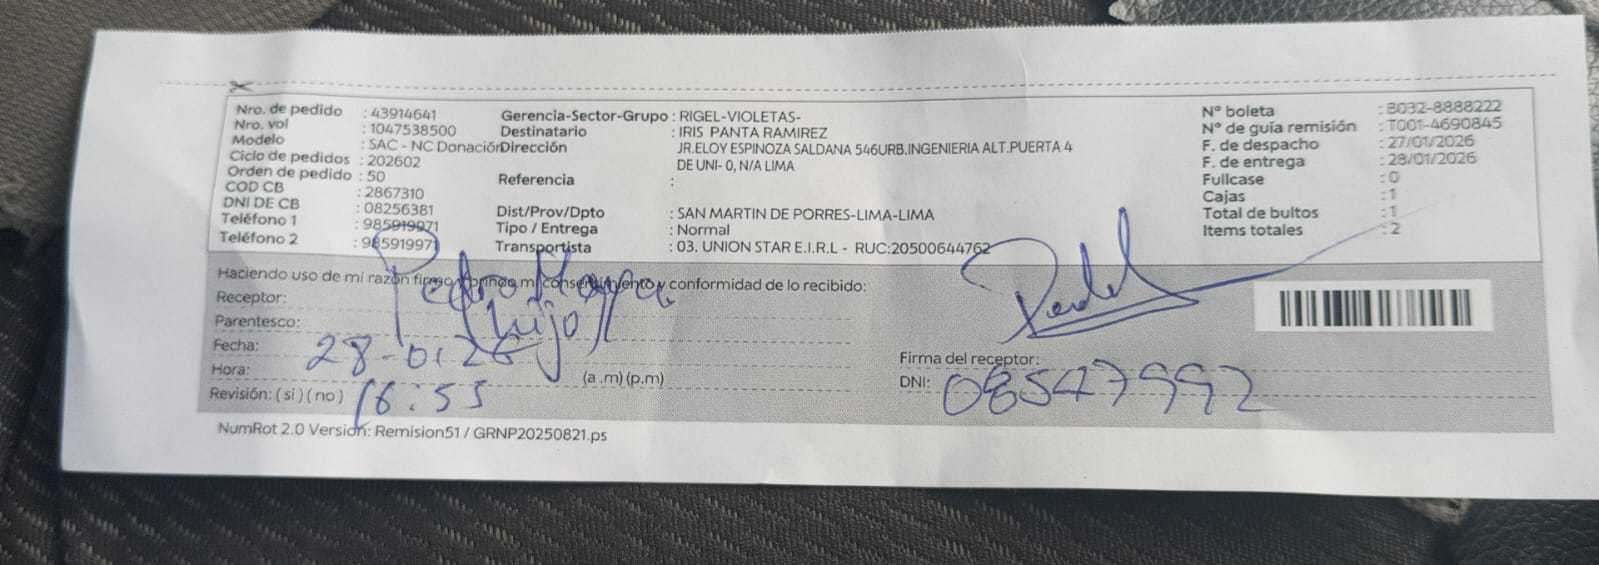 Nro. de pedido : 43914641
Nro. vol : 1047538500
Modelo : SAC - NC Donación
Ciclo de pedidos : 202602
Orden de pedido : 50
COD CB : 2867310
DNI DE CB : 08256381
Teléfono 1 : 985919971
Teléfono 2 : 985919971
Gerencia-Sector-Grupo : RIGEL-VIOLETAS-
Destinatario : IRIS PANTA RAMIREZ
Dirección JR.ELOY ESPINOZA SALDANA 546URB.INGENIERIA ALT.PUERTA 4
DE UNI- 0, N/A LIMA
Referencia :
Dist/Prov/Dpto : SAN MARTIN DE PORRES-LIMA-LIMA
Tipo / Entrega : Normal
Transportista : 03. UNION STAR E.I.R.L - RUC:20500644762
N° boleta : B032-8888222
N° de guía remisión : T001-4690845
F. de despacho : 27/01/2026
F. de entrega : 28/01/2026
Fullcase : 0
Cajas : 1
Total de bultos : 1
Items totales : 2
Haciendo uso de mi razón firmo y brindo mi consentimiento y conformidad de lo recibido:
Receptor: Pedro
Parentesco: hijo
Fecha: 28-01-26
Hora: 16:55 (a .m) (p.m)
Revisión: ( si ) ( no )
Firma del receptor:
DNI: 08547992
NumRot 2.0 Version: Remision51 / GRNP20250821.ps